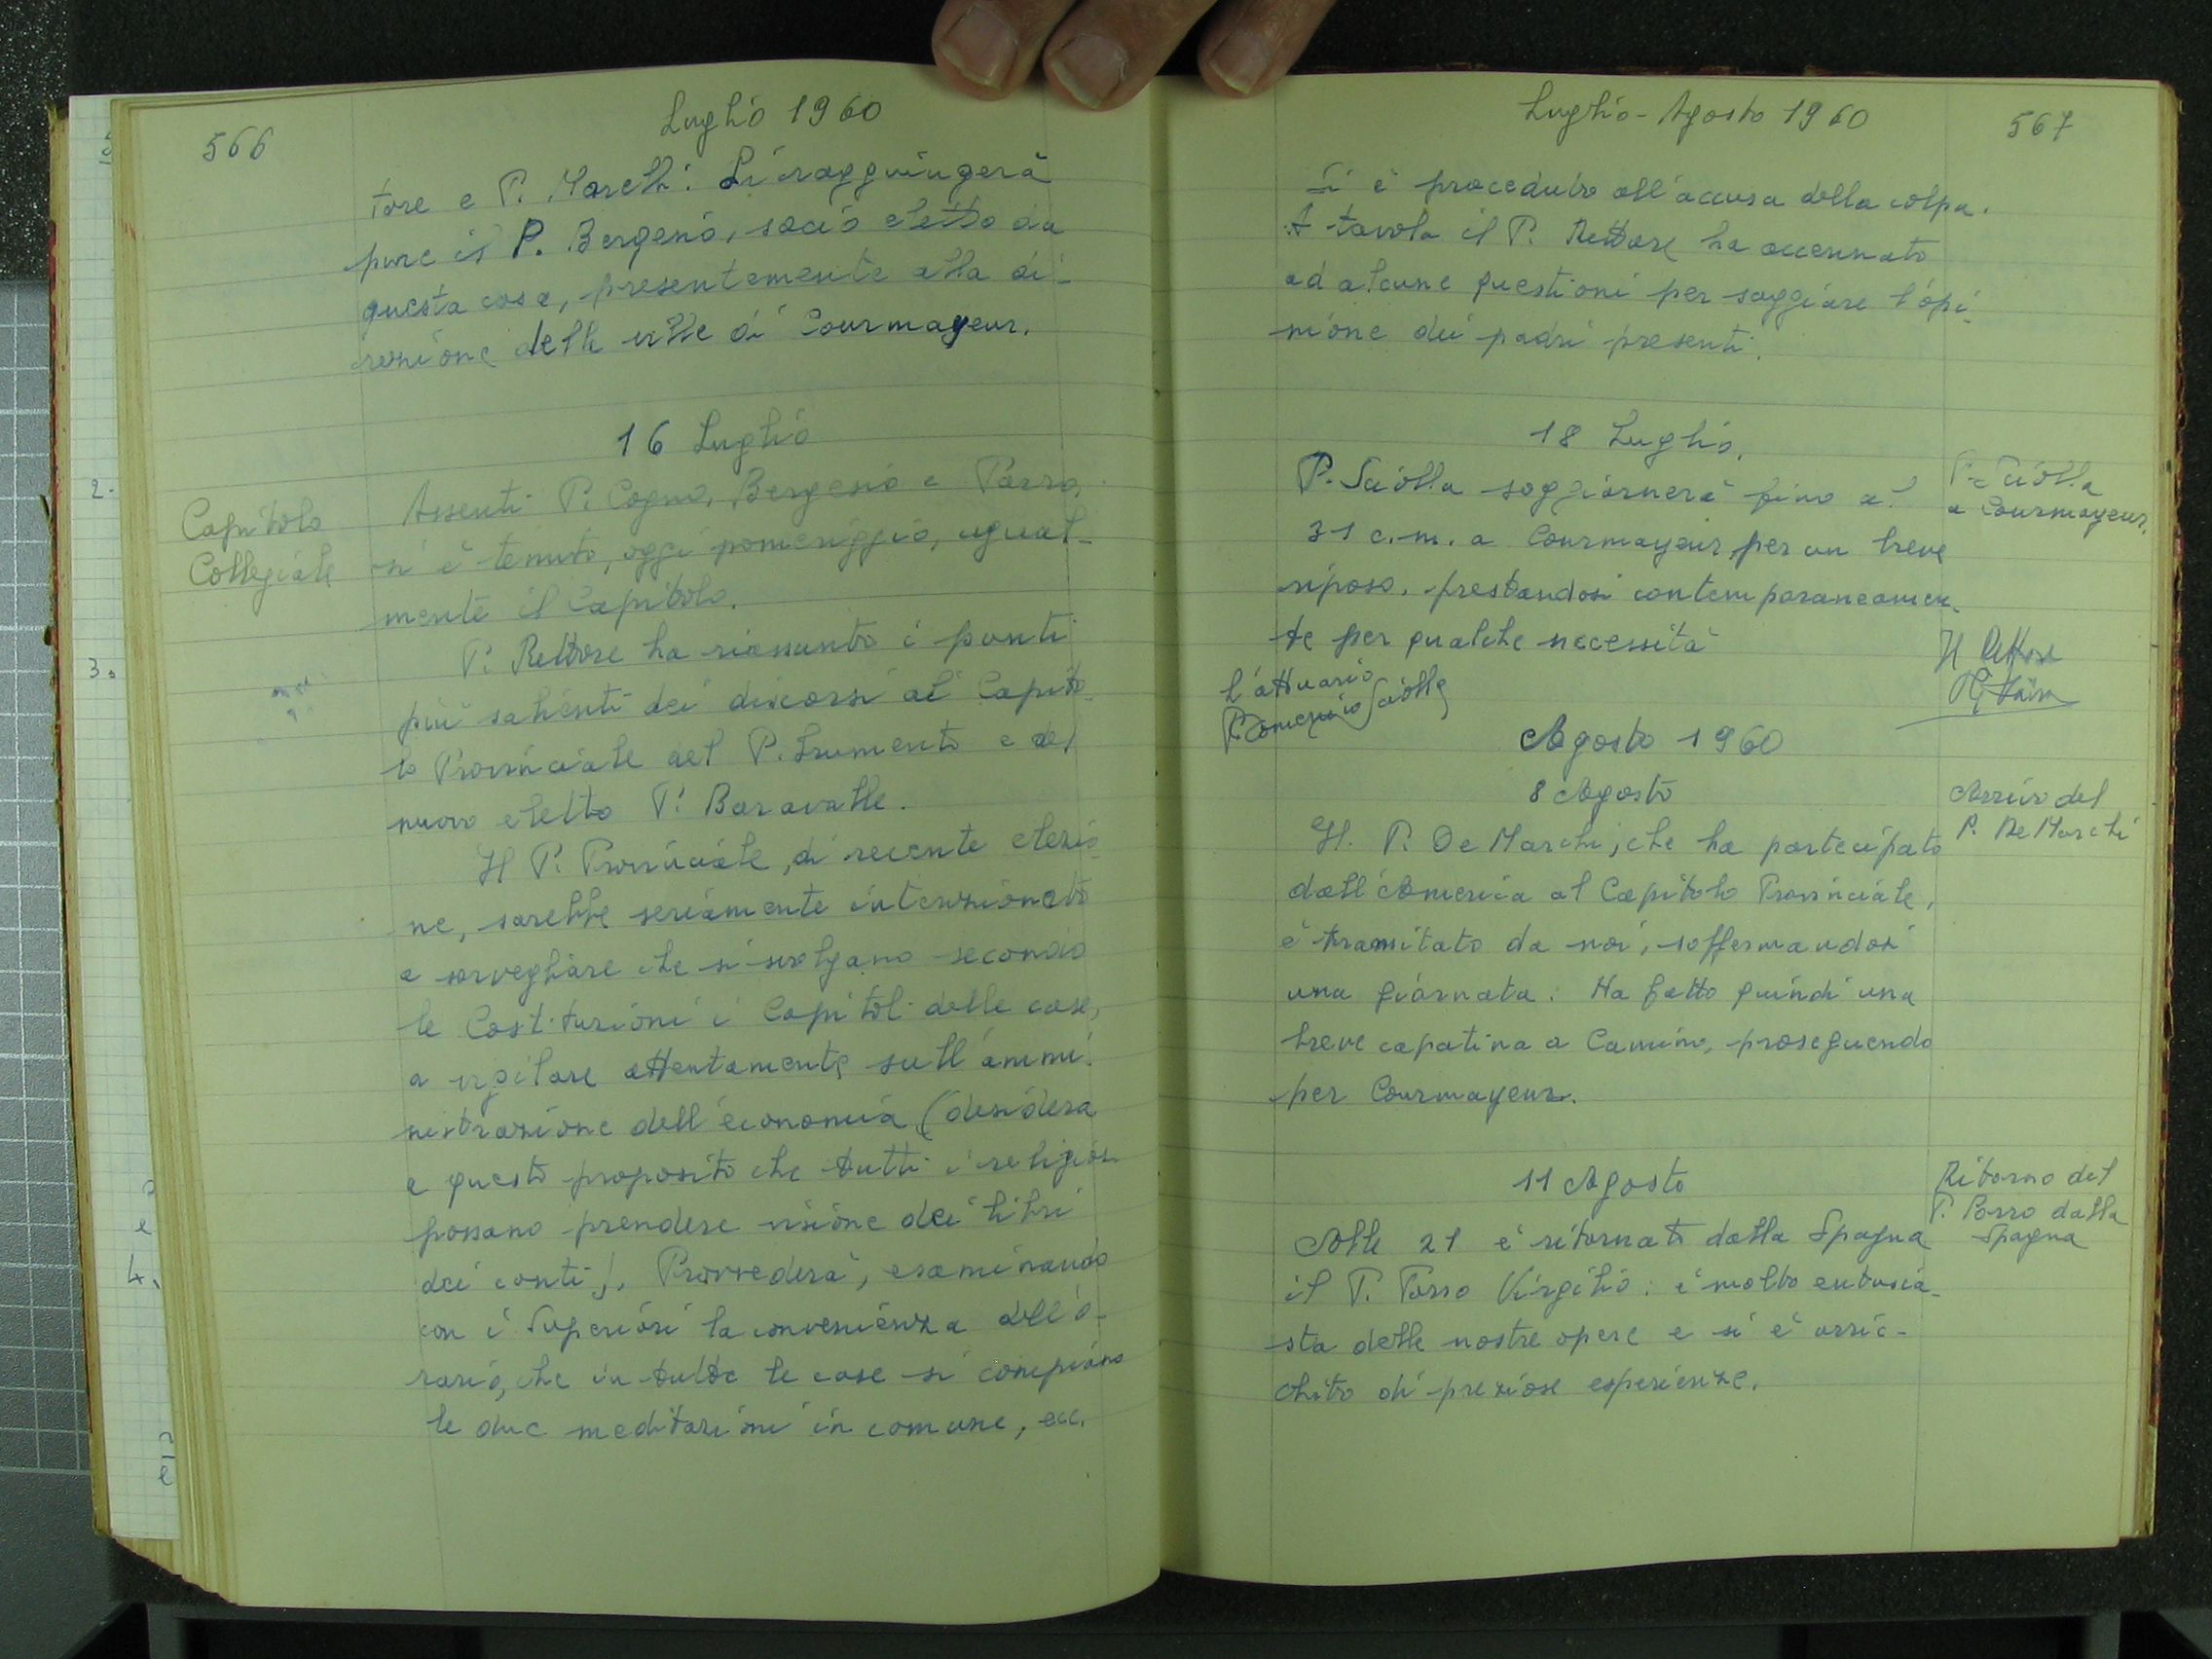 566
Luglio 1960
tore e P. Morelli. Li raggiungerà
pure il P. Bergesio, socio eletto da
questa casa, presentemente alla di-
rezione delle ville di Courmayeur.
16 Luglio
Capitolo
Collegiale
Assenti P. Cogno, Bergesio e Porro,
si è tenuto, oggi pomeriggio, ugual-
mente il Capitolo.
P. Rettore ha riassunto i punti
più salienti dei discorsi al Capito-
lo Provinciale del P. Frumento e del
nuovo eletto P. Baravalle.
Il P. Provinciale, di recente elezio-
ne, sarebbe seriamente intenzionato
a sorvegliare che si svolgano secondo
le Costituzioni i Capitoli delle case,
a vigilare attentamente sull'ammi-
nistrazione dell'economia (desidera
a questo proposito che tutti i religiosi
possano prendere visione dei libri
dei conti). Provvederà, esaminando
con i Superiori la convenienza dell'o-
rario, che in tutte le case si compiano
le due meditazioni in comune, ecc.
2.
3.
e
4.
Luglio - Agosto 1960
567
Si è proceduto all'accusa della colpa.
A tavola il P. Rettore ha accennato
ad alcune questioni per saggiare l'opi-
nione dei padri presenti.
18 Luglio.
P. Sciolla
a Courmayeur.
P. Sciolla soggiornerà fino al
31 c.m. a Courmayeur, per un breve
riposo, prestandosi contemporaneamen-
te per qualche necessità
l'attuario
P. Domenico Sciolla
Il Rettore
Agosto 1960
8 Agosto
Arrivo del
P. De Marchi
Il P. De Marchi, che ha partecipato
dall'America al Capitolo Provinciale,
è transitato da noi, soffermandosi
una giornata. Ha fatto quindi una
breve capatina a Camino, proseguendo
per Courmayeur.
11 Agosto
Ritorno del
P. Porro dalla
Spagna
Alle 21 è ritornato dalla Spagna
il P. Porro Virgilio: è molto entusia-
sta delle nostre opere e si è arric-
chito di preziose esperienze.